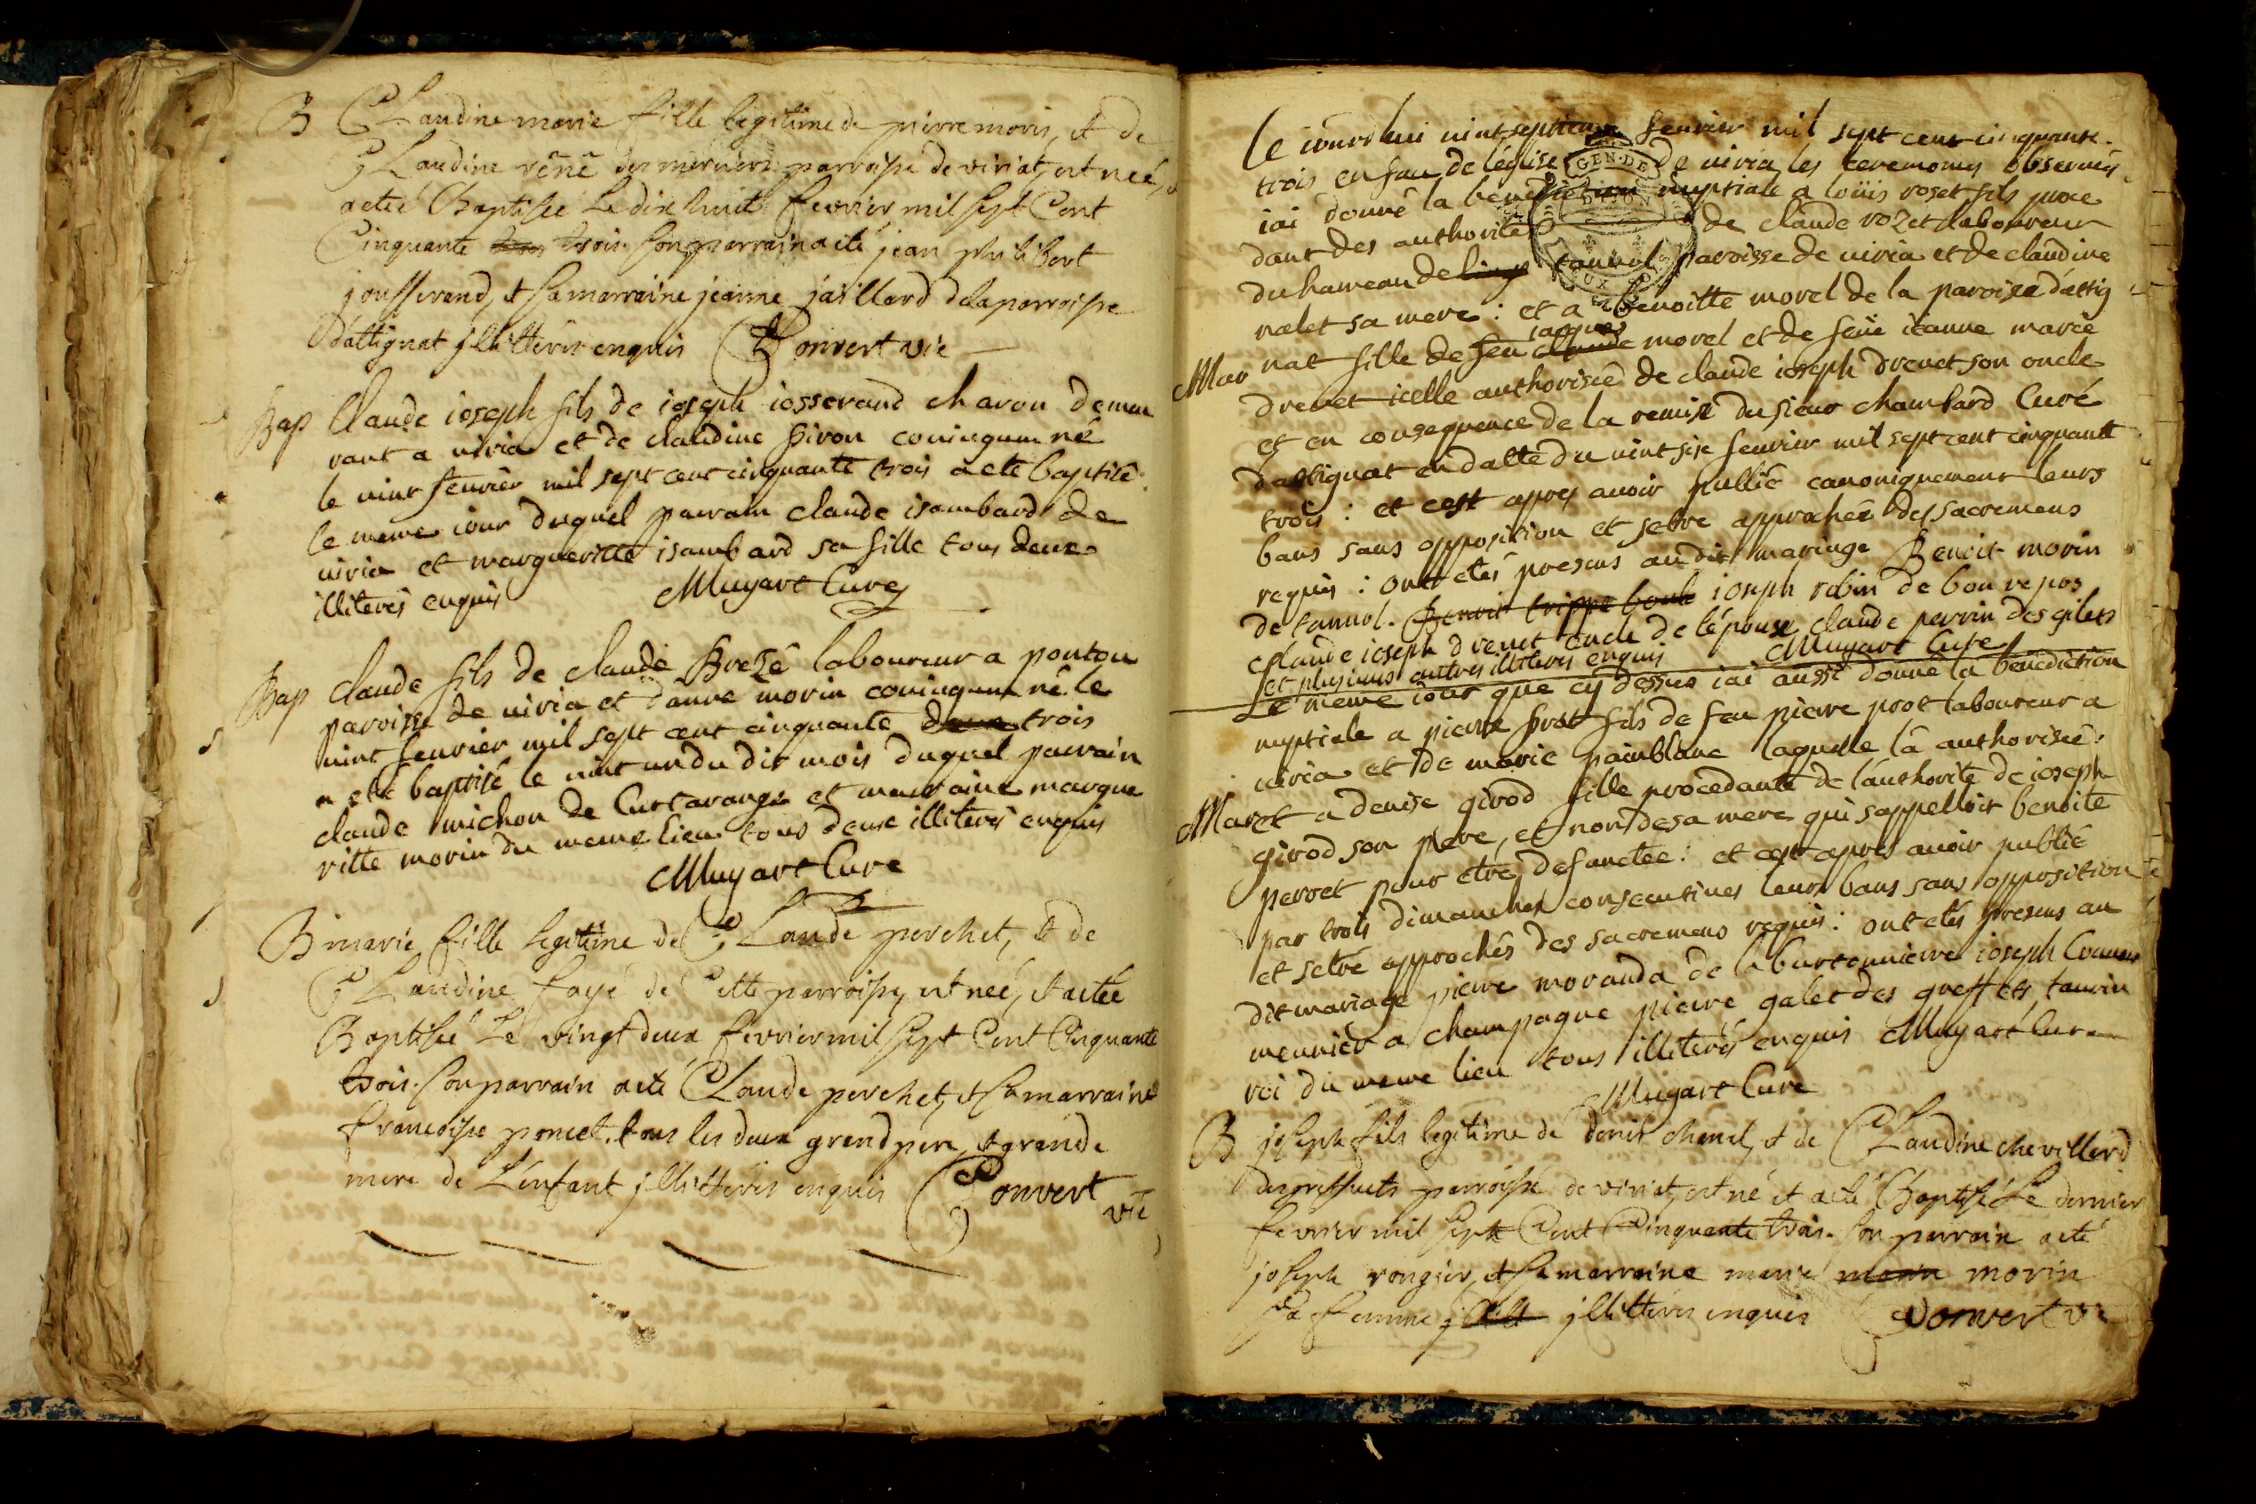 B Claudine marie fille legitime de pierre moris, et de
Claudine rêñê des meruiers parroisse de viriat, est neé, et
a eté Baptisée Le dix huit fevrier mil sept Cent
Cinquante trois. son parrain a eté jean philibert
jousserand, et sa marraine jeanne jaillard de la parroisse
d'attignat jllitterés enquis Convert vic
Bap Claude ioseph fils de ioseph iosserand charon demeu
rant a viria et de claudine piron conioques né
le vint feuvrier mil sept cent cinquante trois a ete baptisé
le meme iour duquel parrain claude isambard de
viria et marguerite isambard sa fille tous deux
illiterés enquis Mugart Curé
Bap Claude fils de claude Brezé laboureur a poutou
paroisse de viria et d'anne morin coniogues né le
vint feuvrier mil sept cent cinquante deux trois
a eté baptisé le vint un du dit mois duquel parrain
claude michon de Curtarange et marraine margue
ritte morin du meme lieu tous deux illiterés enquis
Mugart Cure
B marie fille legitime de Claude perchet, et de
Claudine fayé de Cette parroisse, est neé, et a etée
Baptisée Le vingt deux fevrier mil sept Cent Cinquante
trois. son parrain a eté Claude perchet, et sa marraine
francoise poncet. tous les deux grand pere, et grande
mere de L'enfant jllitterés enquis Convert
vic
le iourdhui vint septieme feuvrier mil sept cent cinquante
trois en face de léglise de viria les ceremonies observées
iai donné la benediction nuptiale a loüis roset fils proce
GEN. DE
DIJON
dant des authorités de claude rozet laboureur
du hameau de tannol paroisse de viria et de claudine
ralet sa mere : et a benoitte morel de la paroisse dattig
Mar nat fille de feu claude jacques morel et de feüe ieanne marie
drevet icelle authorisée de claude ioseph drevet son oncle
et en consequence de la remise du sieur chambard Curé
dattignat en datte du vint six feuvrier mil sept cent cinquante
trois : et cest apres avoir publié canoniquement leurs
bans sans opposition et setre approchés des sacremens
requis : ont etés presens au dit mariage Benoit morin
de tannol. Benoit trippe boule ioseph robin de bon repos
Claude ioseph drevet oncle de l'épouse claude perrin des gilets
et plusieurs autres illiterés enquis Mugart Cure
Le meme iour que cy dessus iai aussi donné la benediction
nuptiale a pierre prot fils de feu pierre prot laboureur a
viria et de marie painblanc laquelle là authorisée.
Mar et a denise girod fille procedante de l'authorité de ioseph
girod son pere, et non de sa mere qui sappelloit benoite
perret pour etre defunctee : et cest apres avoir publié
par trois dimanches consecutives leurs bans sans opposition
et setre approchés des sacremens requis : ont etés presens au
dit mariage pierre moranda de la burtonniere ioseph
meunier a champagne pierre galet des greffets tauvin
roi du meme lieu tous illiterés enquis Mugart Cure
Mugart Cure
B joseph fils legitime de denis chanel, et de Claudine chevillard
des greffets parroisse de viriat, est né et a eté Baptisé Le dernier
fevrier mil sept Cent Cinquante trois. son parrain a eté
joseph rongier, et sa marraine marie morin
sa femme jllitterés enquis Convert vic